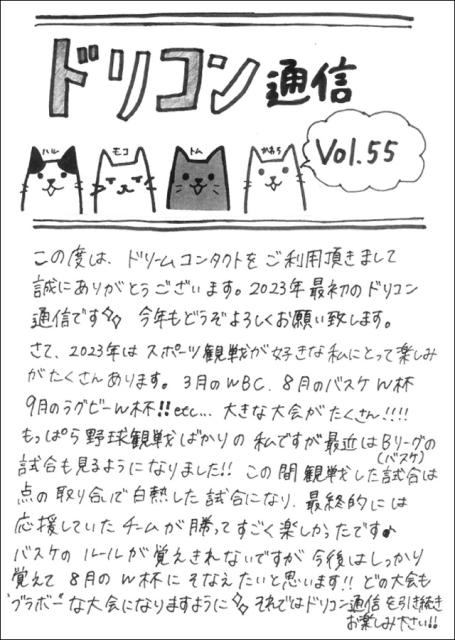 ドリコン通信
ハル モコ トム かわら
Vol.55
この度は、ドリームコンタクトをご利用頂きまして
誠にありがとうございます。2023年最初のドリコン
通信です 今年もどうぞよろしくお願い致します。
さて、2023年はスポーツ観戦が好きな私にとって楽しみ
がたくさんあります。3月のWBC、8月のバスケW杯
9月のラグビーW杯!!etc... 大きな大会がたくさん!!!!
もっぱら野球観戦ばかりの私ですが最近はBリーグの
(バスケ)
試合も見るようになりました!! この間観戦した試合は
点の取り合いで白熱した試合になり、最終的には
応援していたチームが勝ってすごく楽しかったです♪
バスケのルールが覚えきれないですが今後はしっかり
覚えて8月のW杯にそなえたいと思います!! どの大会も
"ブラボー"な大会になりますように それではドリコン通信を引き続き
お楽しみ下さい!!